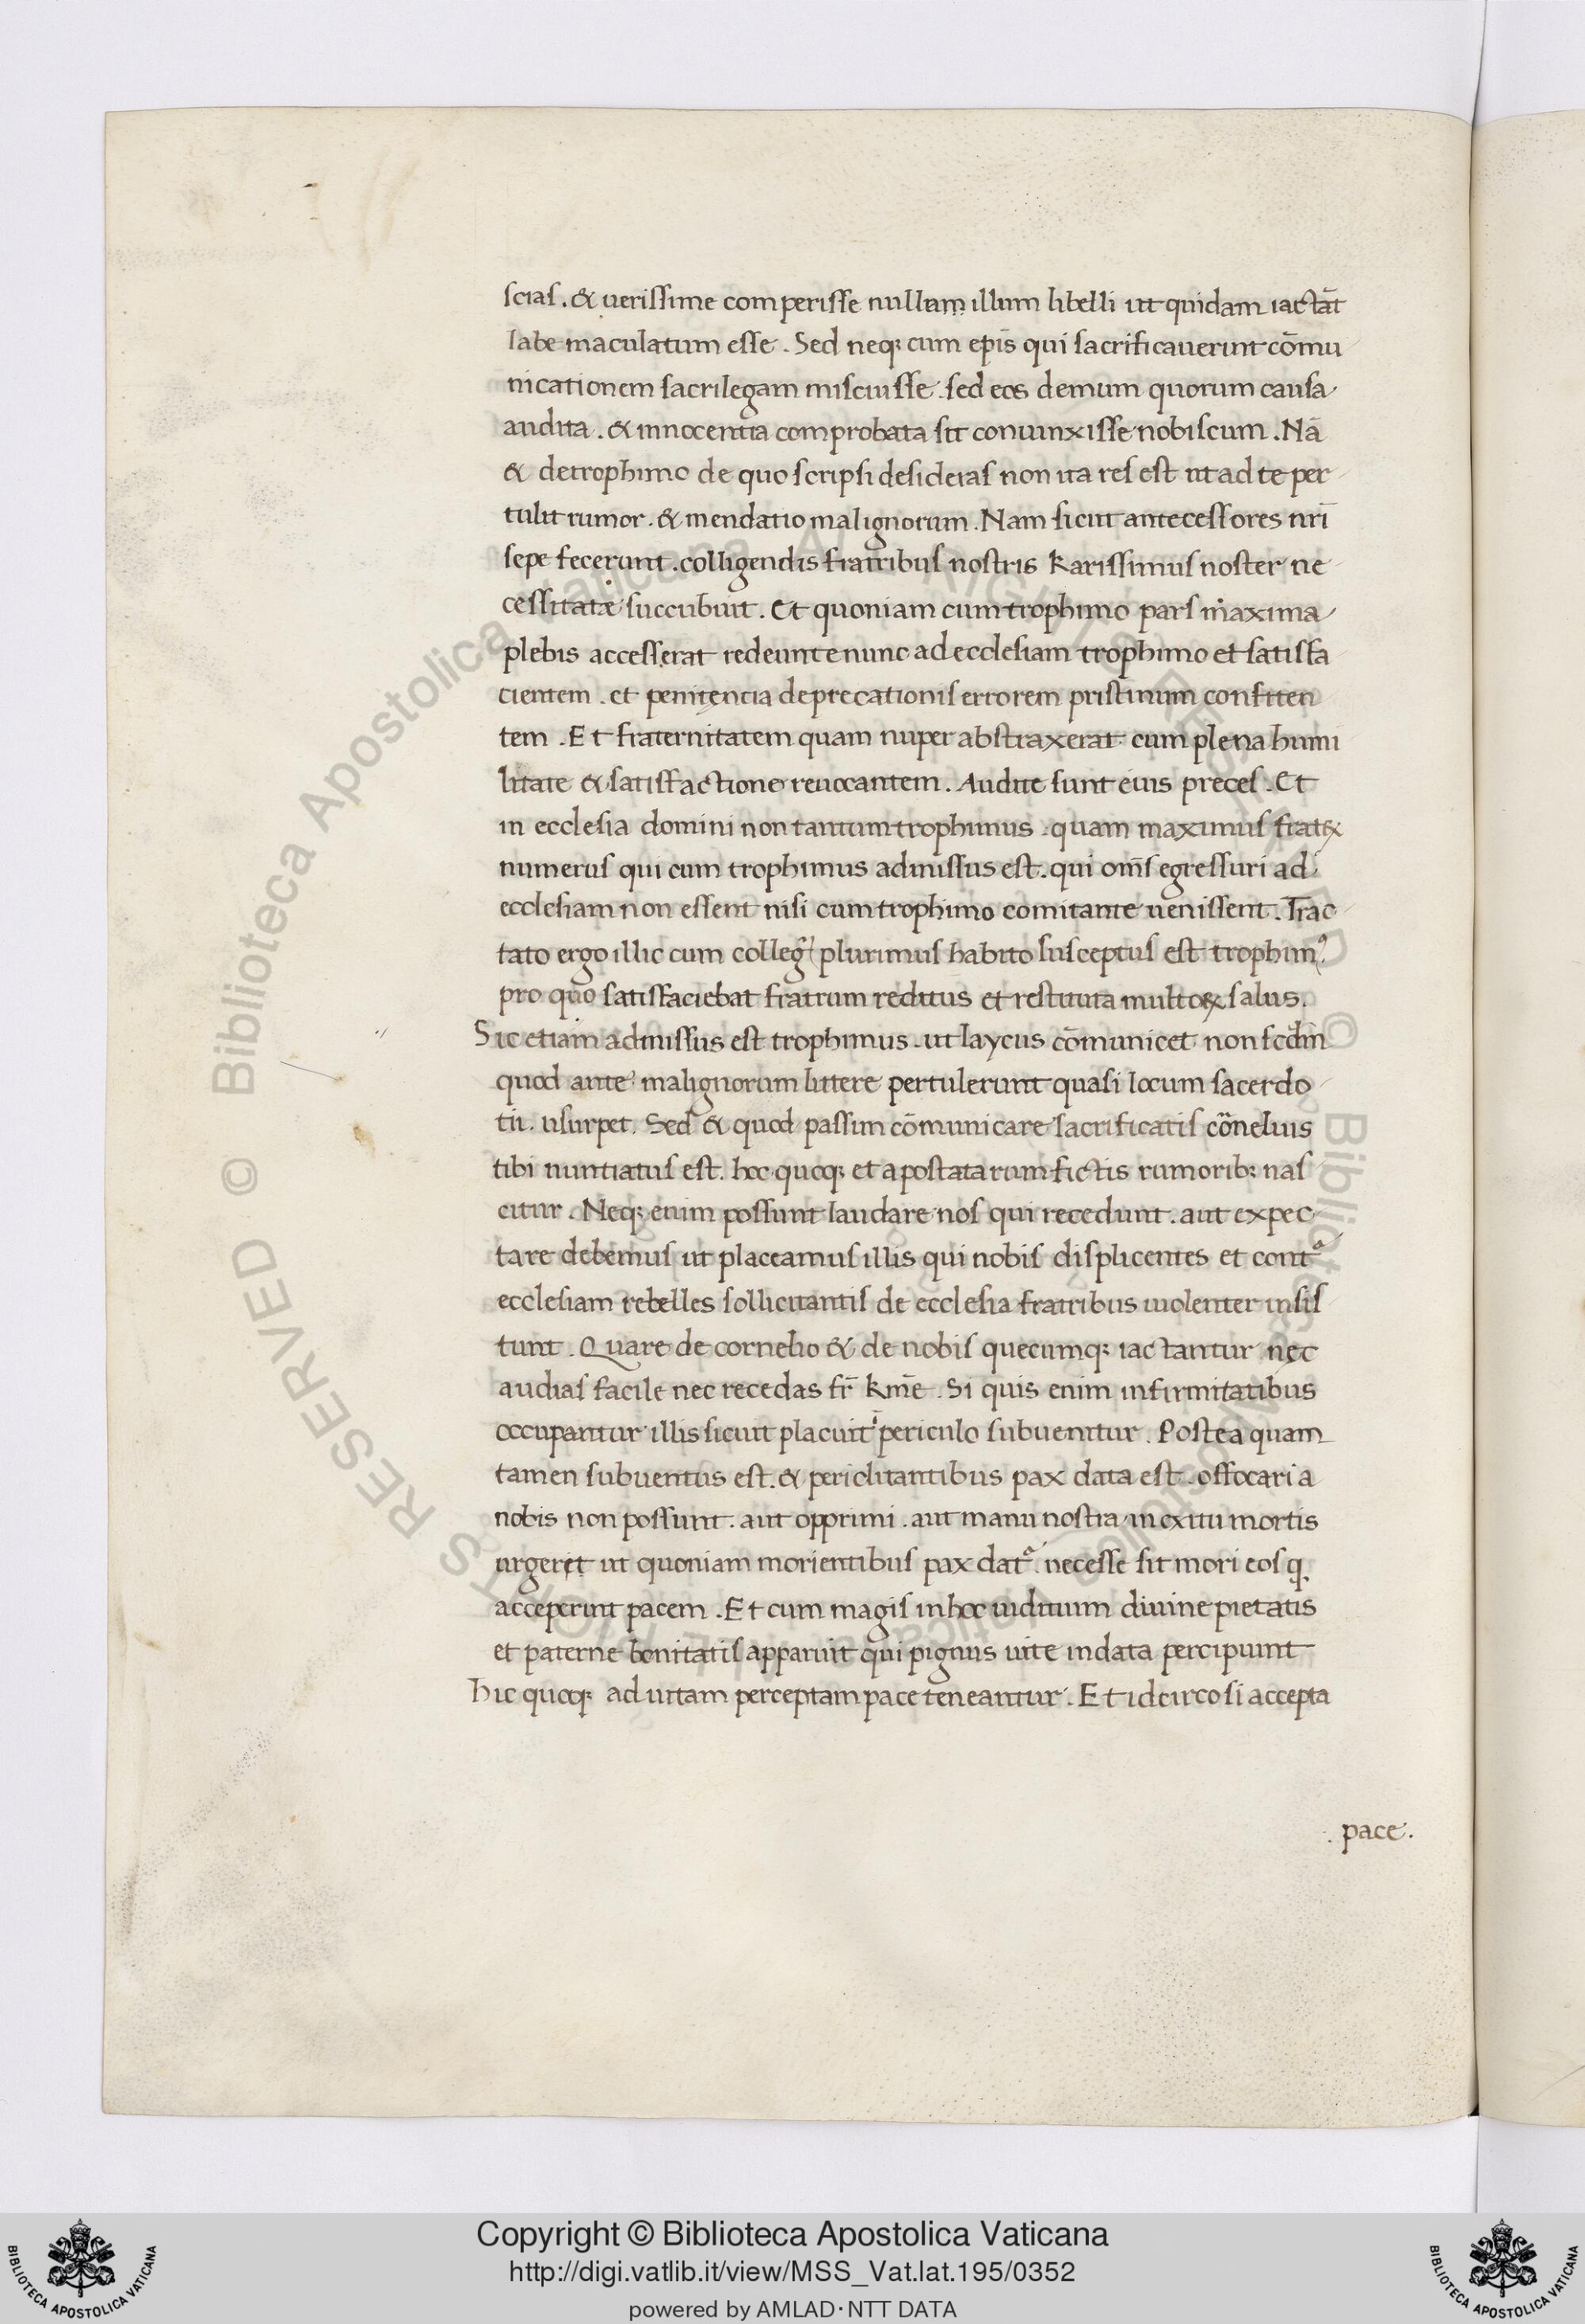 scias. & uerissime comperisse nullam illum libelli ut quidam iactāt
labe maculatum esse. Sed neq; cum epīs qui sacrificauerint cōmu
nicationem sacrilegam miscuisse. sed eos demum quorum causa
audita. & innocentia comprobata sit conuinxisse nobiscum. Nā
& detrophimo de quo scripsi desideras non ita res est ut ad te per
tulit rumor. & mendatio malignorum. Nam sicut antecessores nrī
sepe fecerunt. colligendis fratribus nostris karissimus noster ne
cessitatæ succubuit. Et quoniam cum trophimo pars maxima
plebis accesserat redeunte nunc ad ecclesiam trophimo et satisfa
cientem. et penitencia deprecationis errorem pristinum confiten
tem. Et fraternitatem quam nuper abstraxerat cum plena humi
litate & satisfactione reuocantem. Audite sunt eius preces. Et
in ecclesia domini non tantum trophimus. quam maximus fratꝝ
numerus qui cum trophimus admissus est. qui om̄s egressuri ad
ecclesiam non essent nisi cum trophimo comitante uenissent. Trac
tato ergo illic cum colleg' plurimus habito susceptus est trophim⁹
pro quo satisfaciebat fratrum reditus et restituta multoꝝ salus.
Sic etiam admissus est trophimus. ut laycus cōmunicet non scdm̄
quod ante malignorum littere pertulerunt quasi locum sacerdo
tii. usurpet. Sed & quod passim cōmunicare sacrificatis cōnelius
tibi nuntiatus est. hoc quoq; et apostatarum fictis rumorib; nas
citur. Neq; enim possunt laudare nos qui recedunt. aut expec
tare debemus ut placeamus illis qui nobis displicentes et contᵃ
ecclesiam rebelles sollicitantis de ecclesia fratribus uiolenter insis
tunt. Quare de cornelio & de nobis quecumq; iactantur nec
audias facile nec recedas fr̄ km̄e. Si quis enim infirmitatibus
occupantur illis sicut placuit periculo subuenitur. Postea quam
tamen subuentus est. & periclitantibus pax data est. offocari a
nobis non possunt. aut opprimi. aut manu nostra in exitu mortis
urgeret ut quoniam morientibus pax datᵃ. necesse sit mori eos q
acceperint pacem. Et cum magis in hoc uiditium diuine pietatis
et paterne bonitatis apparuit qui pignus uite in data percipiunt
hic quoq; ad uitam perceptam pace teneantur. Et idcirco si accepta
. pace.
Copyright © Biblioteca Apostolica Vaticana
http://digi.vatlib.it/view/MSS_Vat.lat.195/0352
powered by AMLAD·NTT DATA
BIBLIOTECA APOSTOLICA VATICANA
BIBLIOTECA APOSTOLICA VATICANA
© Biblioteca Apostolica Vaticana ALL RIGHTS RESERVED
© Biblioteca Apostolica Vaticana ALL RIGHTS RESERVED